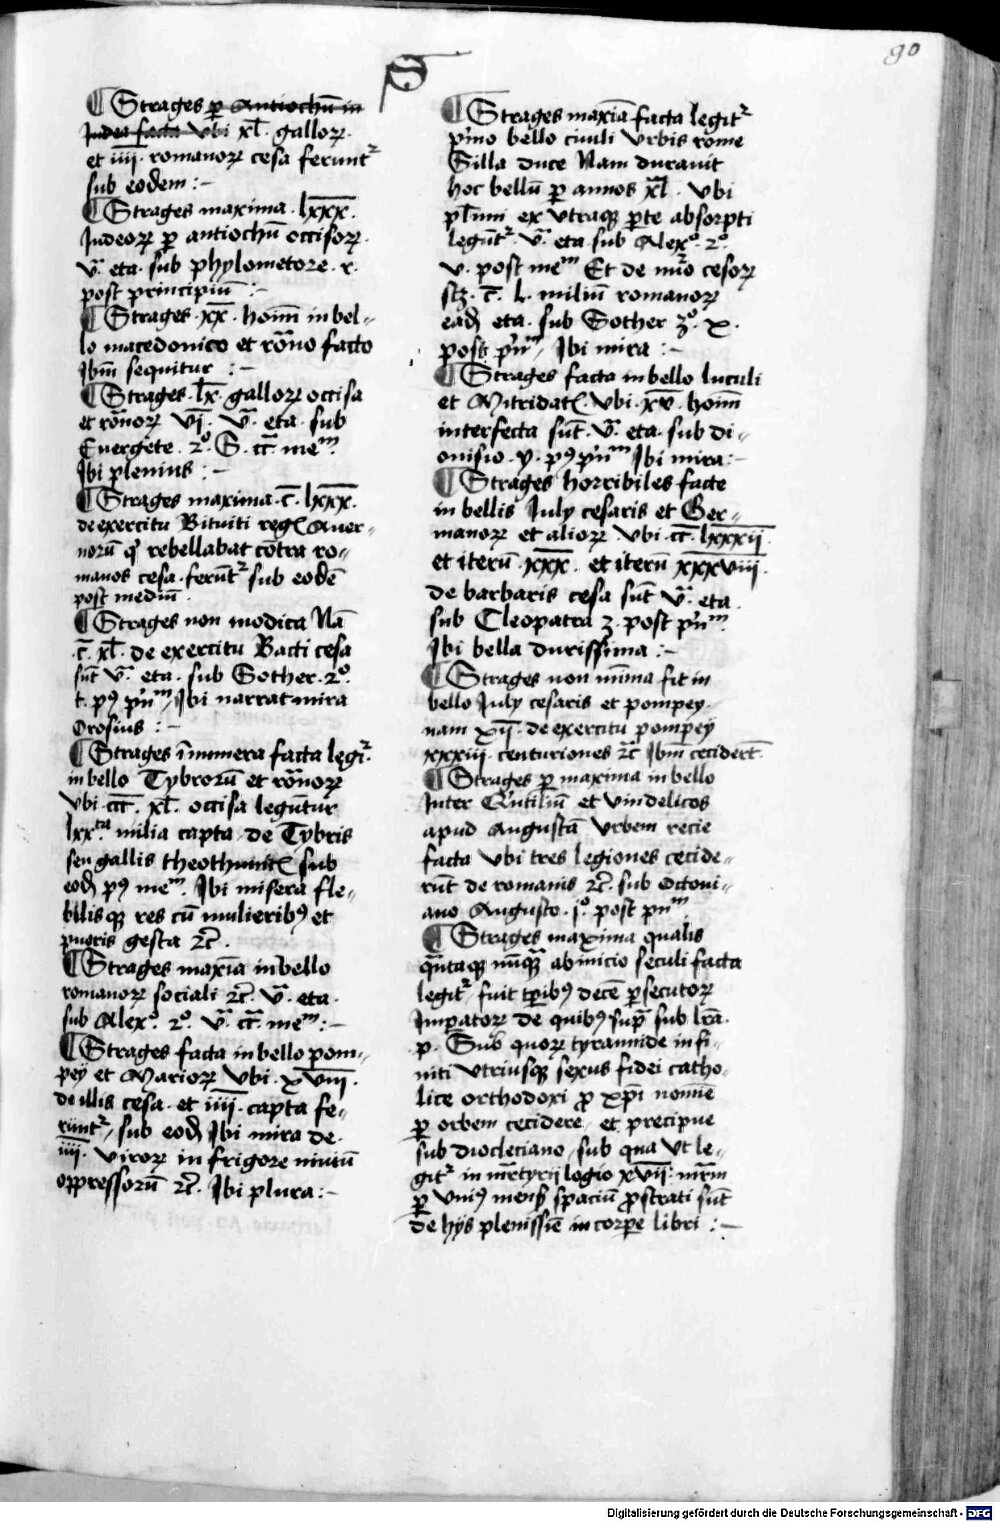 90
S
¶ Strages ꝑ Antiochū in
Judea facta vbi xl̄ galloꝝ.
et iiii̅ romanoꝝ cesa ferunt᷑
sub eodem :-
¶ Strages maxima · lxxx̅.
Judeoꝝ ꝑ antiochū occisoꝝ.
v̄ᵃ eta · sub phylometore · x.
post principiū :-
¶ Strages · xx̅ · hoīm in bel-
lo macedonico et rōno facto
Ibm̄ sequitur :-
¶ Strages · lx̅ · galloꝝ occisa
et rōnoꝝ vi̅ · v̄ᵃ · eta · sub
Euergete · 2º · S · cc̄ · meᵐ
Ibi plenius :-
¶ Strages maxima · c̄ · lxxx̅.
de exercitu Bituiti regꝭ Auer-
norū qͥ rebellabat cōtra ro-
manos cesa · ferūt᷑ sub eodē
post mediū
¶ Strages non modica Nā
c̄ · xl̄ · de exercitu Bacti cesa
sūt v̄ᵃ · eta · sub Sother · 2º.
t · pꝰ pͥnᵐ / Ibi narrat mira
Orosius :-
¶ Strages īnumera facta legit᷑
in bello Tybrorū et rōnoꝝ
vbi · ccc̅ · xl̄ · occisa legūtur
lxxᵗᵃ milia capta · de Tybris
seu gallis theothunicꝭ sub
eodē pꝰ meᵐ. Ibi misera fle-
bilisqꝫ res cū mulieribꝰ et
pueris gesta ⁊c̄ .
¶ Strages maxīa in bello
romanoꝝ sociali ⁊c̄ · v̄ᵃ · eta ·
sub Alexº · 2º · v̄ᵃ cc̄ · meᵐ :-
¶ Strages facta in bello pom-
pey et Marioꝝ vbi · xviii̅ ·
de illis cesa · et iiii̅ · capta fe-
rūnt᷑ / sub eodē Ibi mira de
iiii̅ · viroꝝ in frigore niuiū
oppressorū ⁊c̄ · Ibi plura :-
¶ Strages maxīa facta legit᷑
pͥmo bello ciuili vrbis rome
Silla duce Nam durauit
hoc bellū ꝑ annos xl̄ · vbi
pl̄imi ex vtraqꝫ ꝑte absorpti
legūt᷑ · v̄ᵃ · eta · sub Alexº · 2º.
v · post meᵐ Et de nu᷑o cesoꝝ
sꝫ · c̄ · l · miliū romanoꝝ
eadē eta · sub Sother 3º · x ·
post pͥnᵐ / Ibi mira :-
¶ Strages facta in bello luculi
et Mitridatꝭ vbi · xv̅ · hoīm
interfecta sūt · v̄ᵃ · eta · sub di-
onisio · y · pꝰ pͥnᵐ Ibi mira :-
¶ Strages horribiles facte
in bellis July cesaris et Ger-
manoꝝ et alioꝝ vbi · cc̄ · lxxxii̅
et iterū · xxx̅ · et iterū xxxviii̅.
de barbaris cesa sūt v̄ᵃ · eta
sub Cleopatra 3 · post pͥnᵐ
Ibi bella durissima :-
¶ Strages non mīma fit in
bello July cesaris et pompey ·
nam xv̅ · de exercitu pompey
xxxiii · centuriones ⁊c̄ Ibm̄ ceciderūt ·
¶ Strages ꝑ maxima in bello
Inter Qͥntiliū et vindelicos
apud Augustā vrbem recie
facta vbi tres legiones cecide-
rūt de romanis ⁊c̄ · sub octoui-
ano Augusto · iº · post pͥnᵐ
¶ Strages maxima qualis
qᵃntaqꝫ nūqᵃ ab inicio seculi facta
legit᷑ / fuit tꝑibꝰ decē ꝑsecutoꝝ
Imꝑatoꝝ de quibꝰ supᵃ sub lrā ·
p · Sub quoꝝ tyrannide infi-
niti vtriusqꝫ sexus fidei catho-
lice orthodoxi ꝓ xp̄i nomīe
ꝑ orbem cecidere / et precipue
sub dyocleciano / sub qua vt le-
git᷑ in mr̄tyrilogio xvii̅ · mr̄m
ꝑ vniꝰ mensꝭ spaciū ꝓstrati sūt
de hijs plenissīe in corpe libri :-
Digitalisierung gefördert durch die Deutsche Forschungsgemeinschaft - DFG